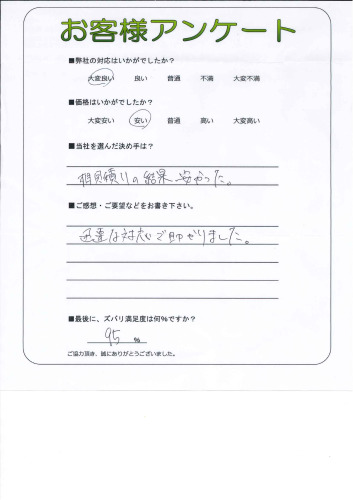 お客様アンケート
■弊社の対応はいかがでしたか?
大変良い 良い 普通 不満 大変不満
■価格はいかがでしたか?
大変安い 安い 普通 高い 大変高い
■当社を選んだ決め手は?
相見積りの結果安かった。
■ご感想・ご要望などをお書き下さい。
迅速な対応で助かりました。
■最後に、ズバリ満足度は何%ですか?
95 %
ご協力頂き、誠にありがとうございました。